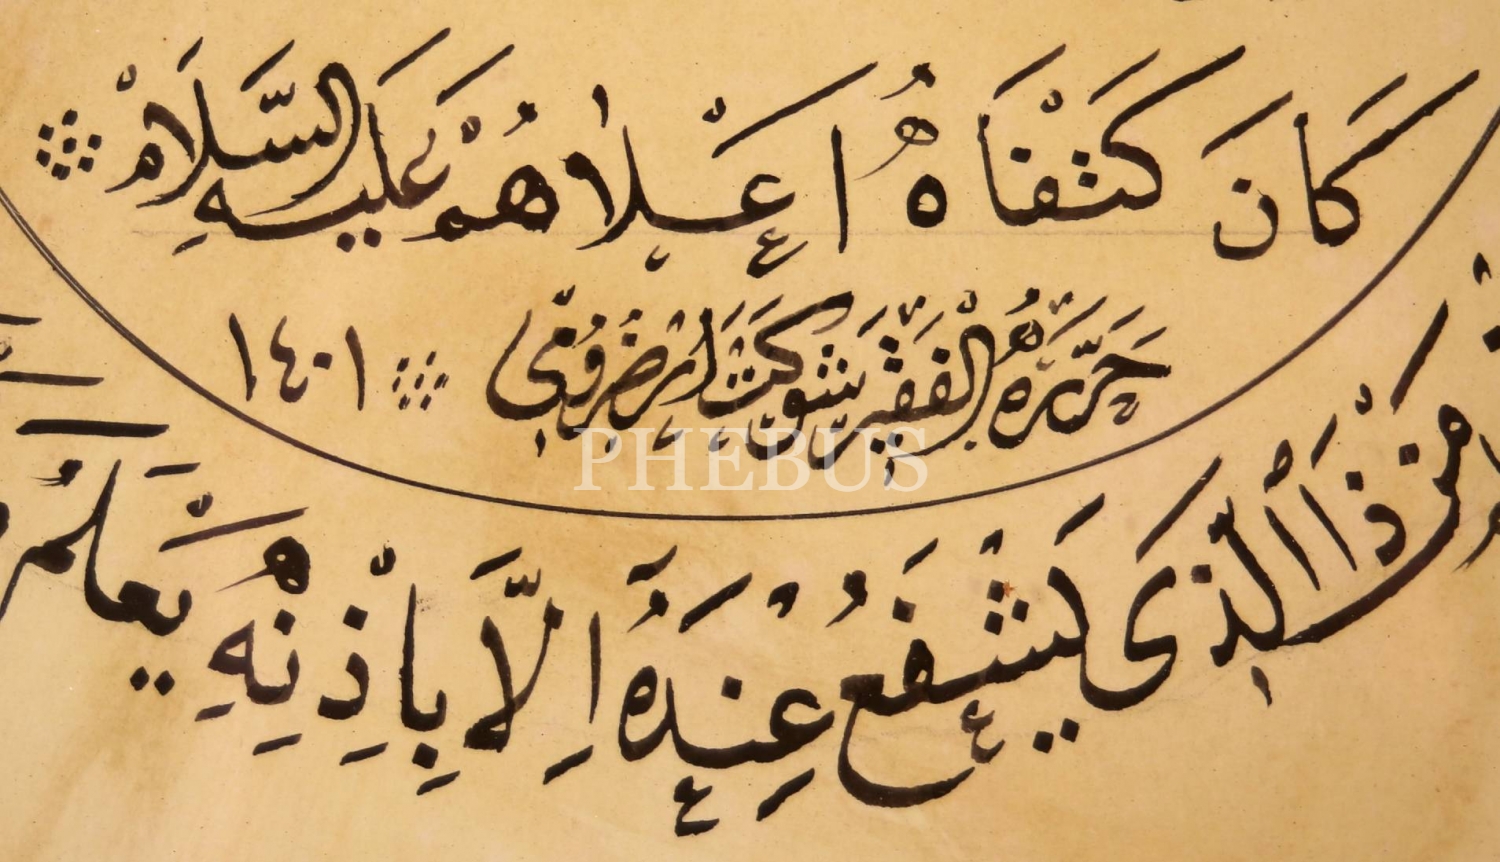 كَانَ كَتْفَاهُ اَعْلَاهُمْ عَلَيْهِ السَّلَامْ
حَرَّرَهُ الْفَقِيرْ شَوْكَتْ ارضرومى ١٤٠١
مَنْ ذَا الَّذِى يَشْفَعُ عِنْدَهُ اِلَّا بِاِذْنِهِ يَعْلَمُ
PHEBUS